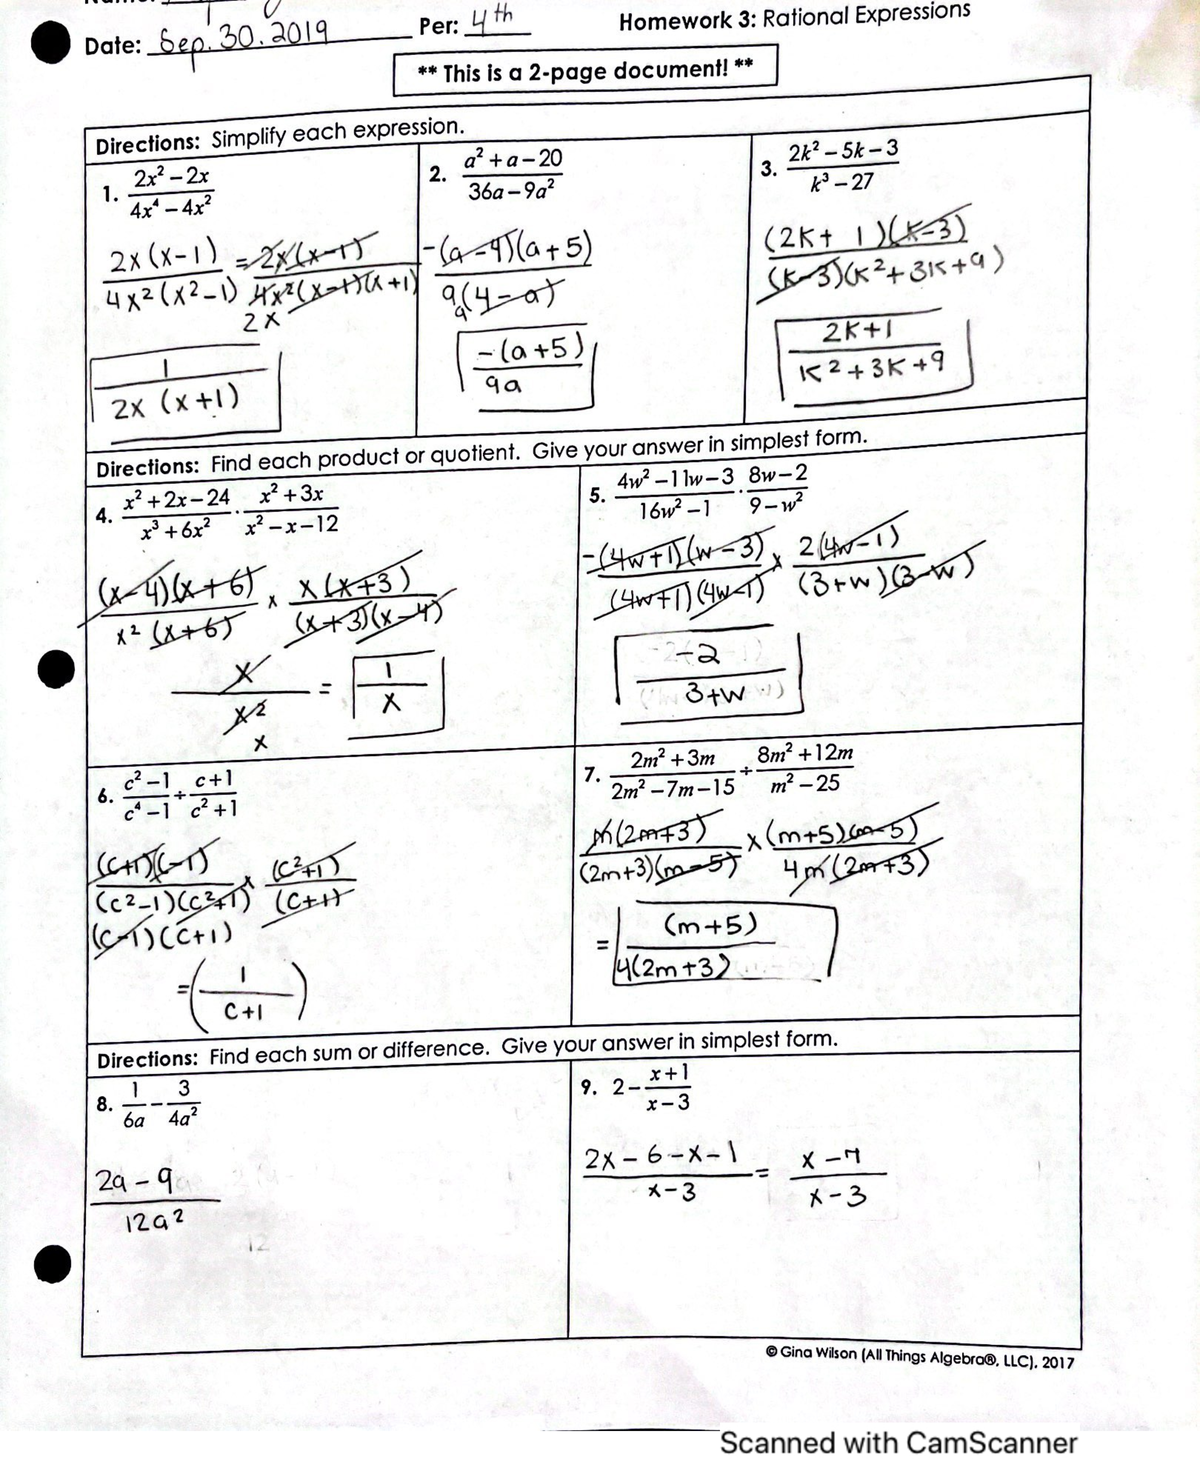 Date: Sep. 30. 2019 Per: 4th Homework 3: Rational Expressions
** This is a 2-page document! **
Directions: Simplify each expression.
1. (2x² – 2x)/(4x⁴ – 4x²)
2x(x-1)/4x²(x²-1) = 2x(x-1)/4x²(x-1)(x+1)
2x
1/2x (x+1)
2. (a² + a – 20)/(36a – 9a²)
-(a-4)(a+5)/9(4-a)
a
-(a+5)/9a
3. (2k² – 5k – 3)/(k³ – 27)
(2k+1)(k-3)/(k-3)(k²+3k+9)
2k+1/k²+3k+9
Directions: Find each product or quotient. Give your answer in simplest form.
4. (x² + 2x – 24)/(x³ + 6x²) · (x² + 3x)/(x² – x – 12)
(x-4)(x+6)/x²(x+6) x x(x+3)/(x+3)(x-4)
x/x² = 1/x
x
5. (4w² – 11w – 3)/(16w² – 1) · (8w – 2)/(9 – w²)
-(4w+1)(w-3)/(4w+1)(4w-1) x 2(4w-1)/(3+w)(3-w)
-2/3+w
6. (c² – 1)/(c⁴ – 1) ÷ (c+1)/(c² + 1)
(c+1)(c-1)/(c²-1)(c²+1) x (c²+1)/(c+1)
(c-1)(c+1)
= (1/c+1)
7. (2m² + 3m)/(2m² – 7m – 15) ÷ (8m² + 12m)/(m² – 25)
m(2m+3)/(2m+3)(m-5) x (m+5)(m-5)/4m(2m+3)
= (m+5)/4(2m+3)
Directions: Find each sum or difference. Give your answer in simplest form.
8. 1/6a – 3/4a²
2a - 9/12a²
9. 2 – (x+1)/(x – 3)
2x - 6 - x - 1/x-3 = x-7/x-3
© Gina Wilson (All Things Algebra®, LLC), 2017
Scanned with CamScanner